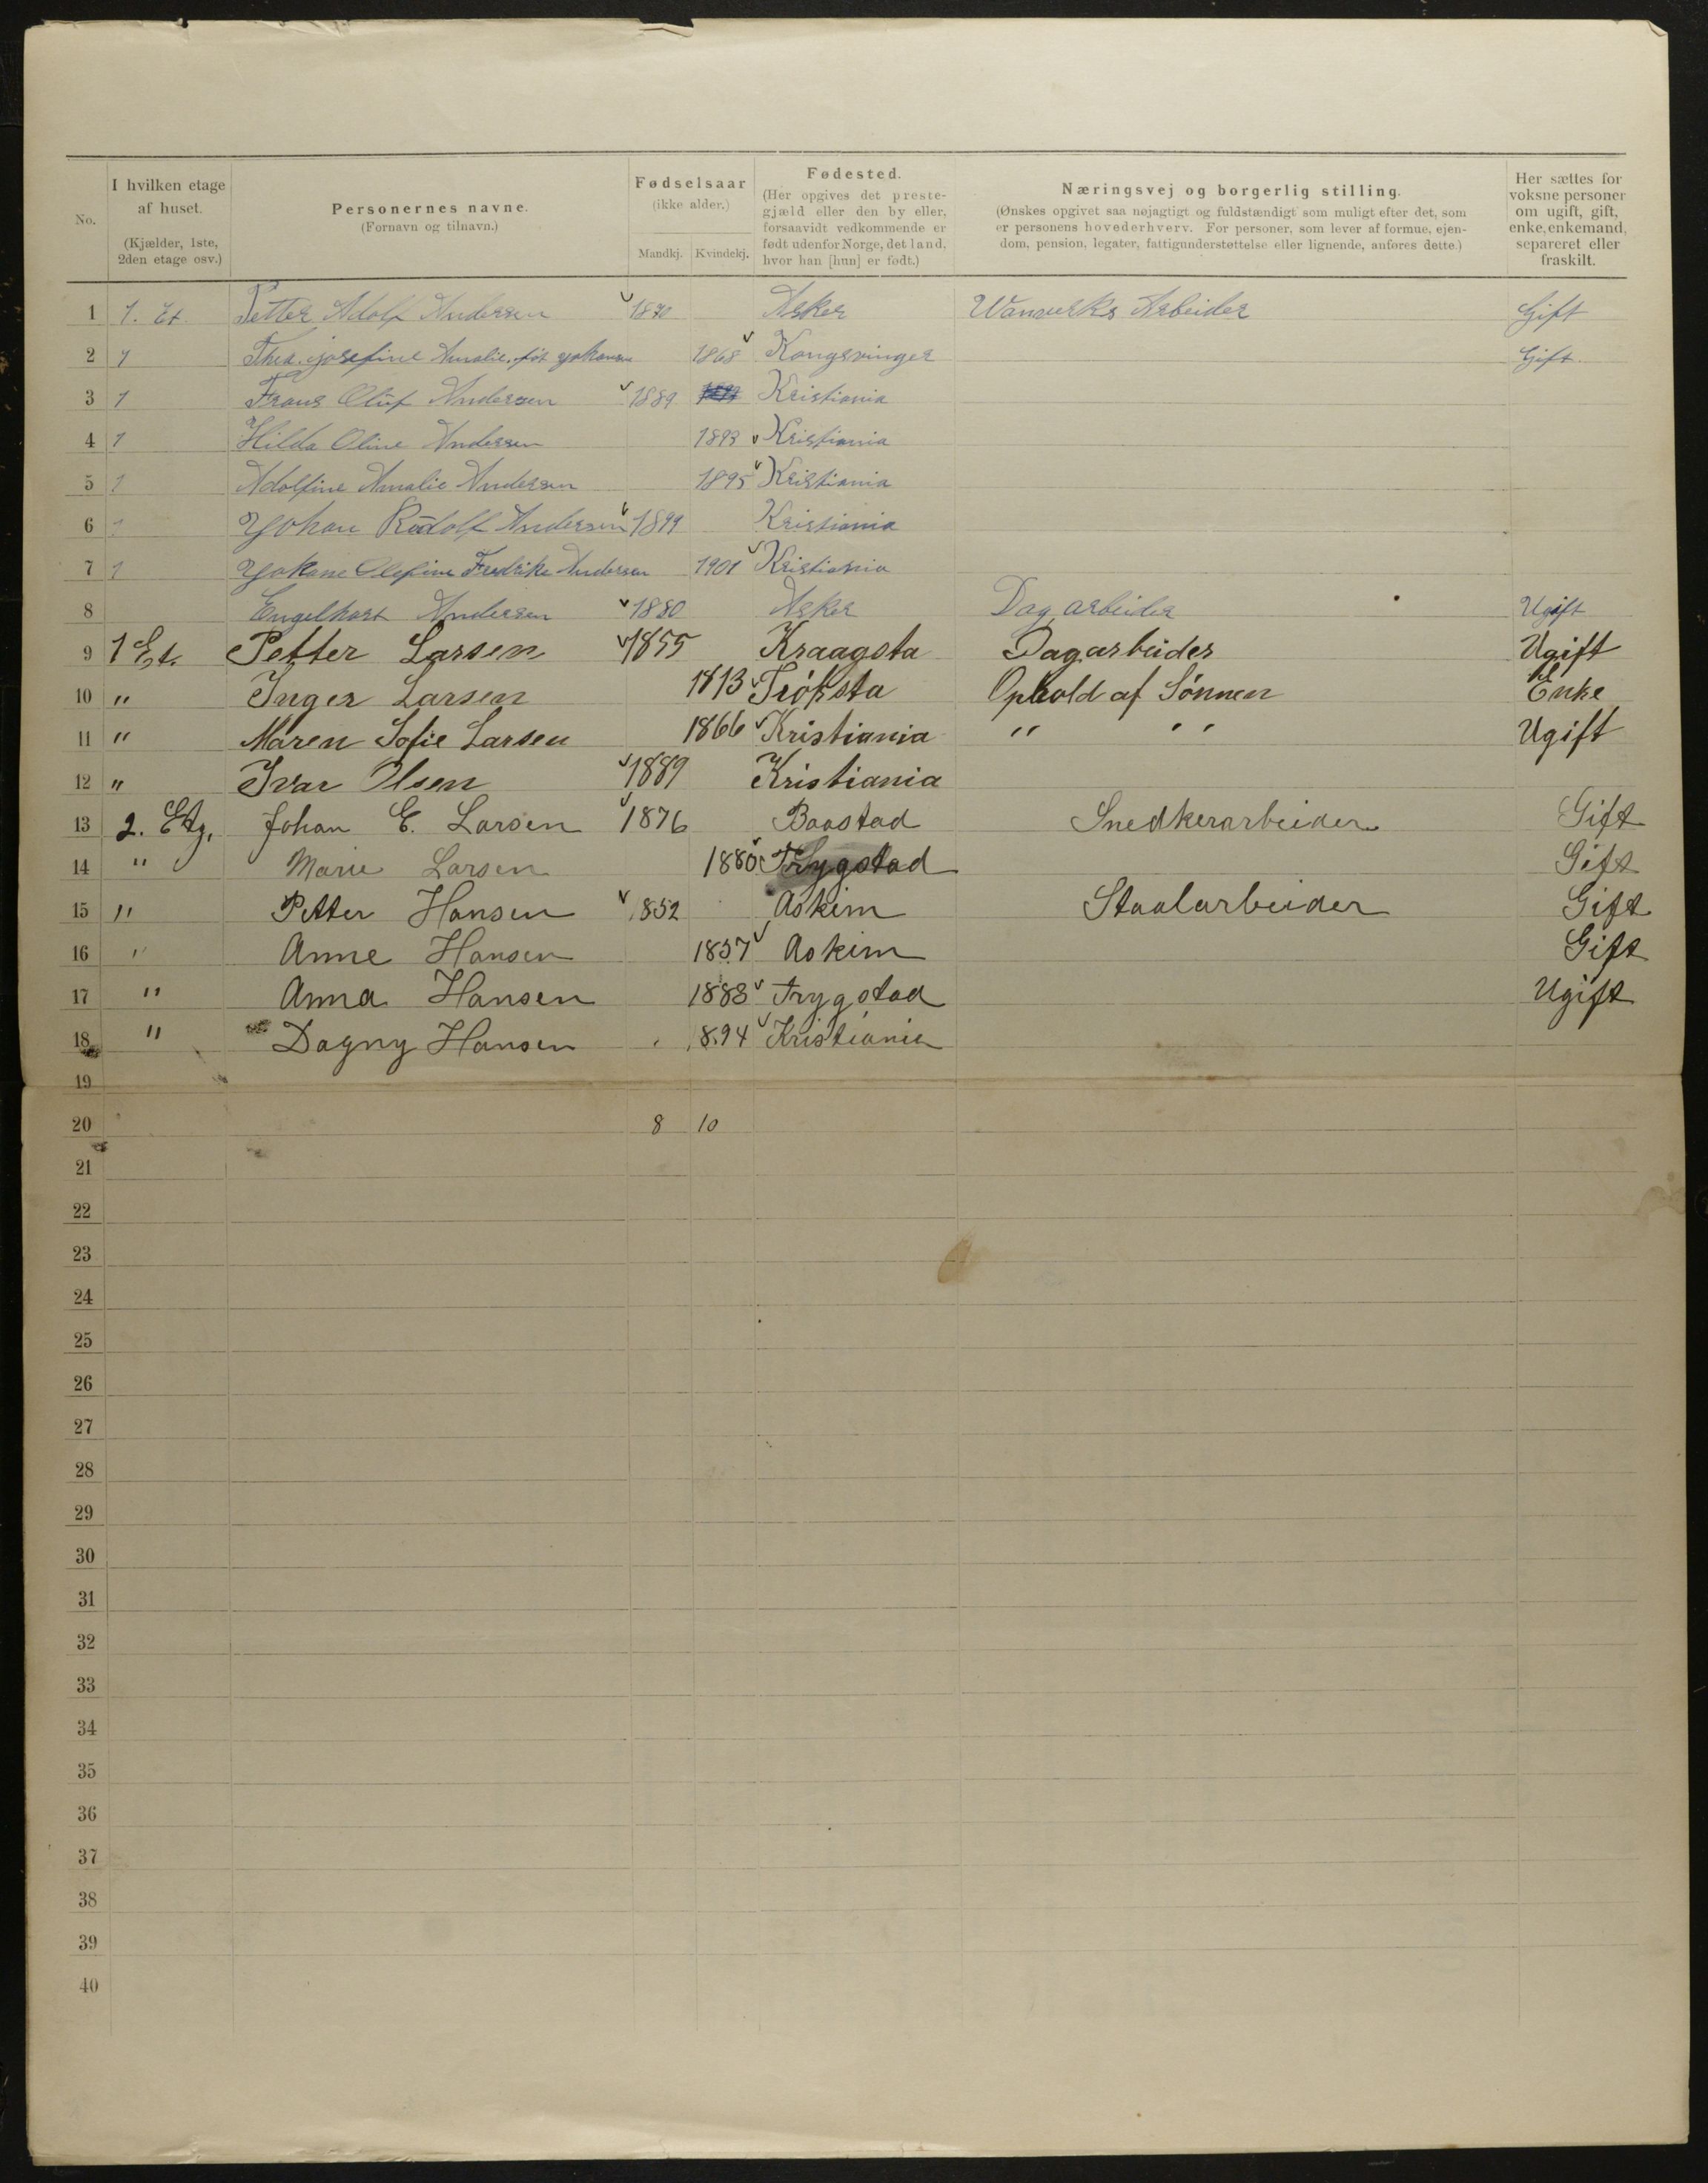 No.
I hvilken etage af huset. (Kjælder, 1ste, 2den etage osv.)
Personernes navne. (Fornavn og tilnavn.)
Fødselsaar (ikke alder.)
Mandkj. Kvindekj.
Fødested. (Her opgives det prestegjæld eller den by eller, forsaavidt vedkommende er født udenfor Norge, det land, hvor han [hun] er født.)
Næringsvej og borgerlig stilling. (Ønskes opgivet saa nøjagtigt og fuldstændigt som muligt efter det, som er personens hovederhverv. For personer, som lever af formue, ejendom, pension, legater, fattigunderstøttelse eller lignende, anføres dette.)
Her sættes for voksne personer om ugift, gift, enke, enkemand, separeret eller fraskilt.
1 1. Et. Petter Adolf Andersen 1870 Asker Arbeider Gift
2 1 Josefine Amalie, føt 1868 Kongsvinger Gift
3 1 Frans Oluf Andersen 1889 Kristiania
4 1 Hilda Oline Andersen 1893 Kristiania
5 1 Adolfine Amalie Andersen 1895 Kristiania
6 1 Yohan Rudolf Andersen 1899 Kristiania
7 1 Yohane Olefine Fredrike Andersen 1901 Kristiania
8 Engelhart Andersen 1880 Asker Dag arbeider Ugift
9 1 Et. Petter Larsen 1855 Kraagsta Dagarbeider Ugift
10 " Inger Larsen 1813 Trøksta Ophold af Sønnen Enke
11 " Maren Sofie Larsen 1866 Kristiania " " Ugift
12 " Ivar Olsen 1889 Kristiania
13 2. Etg. Johan E. Larsen 1876 Baastad Snedkerarbeider Gift
14 " Marie Larsen 1880 Trygstad Gift
15 " Petter Hansen 1852 Askim Staalarbeider Gift
16 " Anne Hansen 1857 Askim Gift
17 " Anna Hansen 1883 Trygstad Ugift
18 " Dagny Hansen 1894 Kristiania
19
20 8 10
21
22
23
24
25
26
27
28
29
30
31
32
33
34
35
36
37
38
39
40